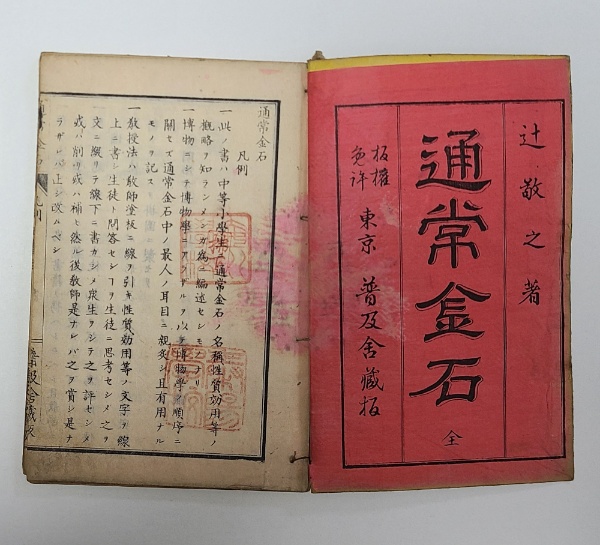 辻敬之著
通常金石 全
板権免許
東京 普及舎蔵板
通常金石
凡例
一此ノ書ハ中等小學生ニ通常金石ノ名稱性質効用等ノ
概略ヲ知ランメンガ爲ニ編述セシモノナリ
一博物ニシテ博物學ニアラザルヲ以テ博物學ノ順序ニ
關セズ通常金石中ノ最人ノ耳目ニ親炙シ且有用ナル
モノヲ記ス
一教授法ハ教師塗板ニ線ヲ引キ性質効用等ノ文字ヲ線
上ニ書シ生徒ト問答セシヿヲ生徒ニ思考セシメ之ヲ
文ニ綴リテ線下ニ書カシメ衆生ヲシテ之ヲ評セシメ
或ハ削リ或ハ補ヒ然ル後教師是ナレバ之ヲ賞シ是ナ
ラザレバ正シ改ムベシ